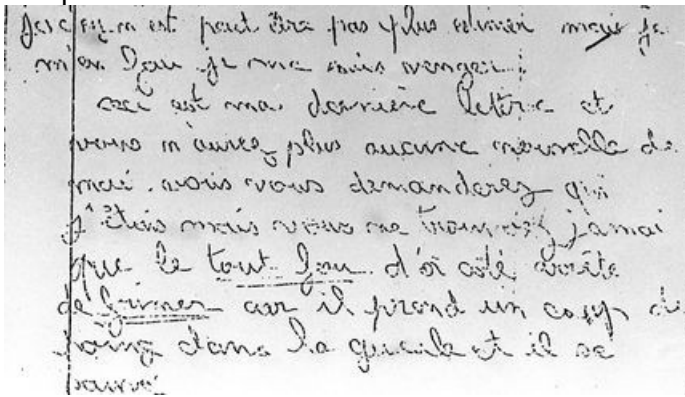 est peut être pas plus mais je
m'en fou je me suis venger.
ceci est ma dernière lettre et
vous n'aurez plus aucune nouvelle de
moi. vous vous demanderez qui
j'étais mais vous ne trouverez jamai
que le tout fou d'à côté arrête
de frimer car il prend un coup de
poing dans la gueule et il se